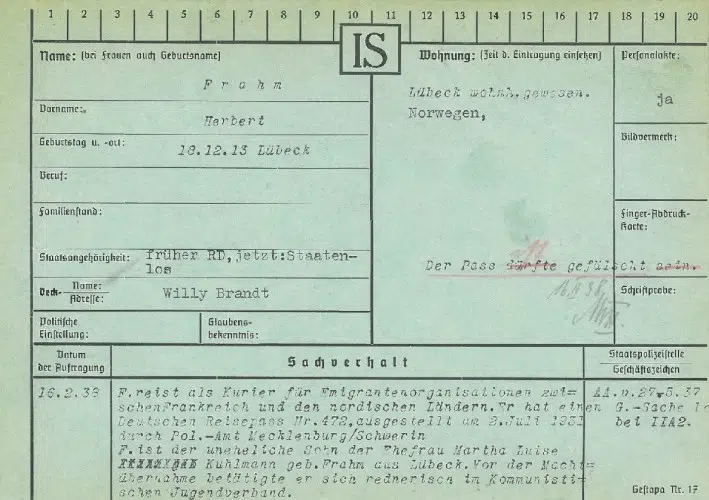 1 2 3 4 5 6 7 8 9 10 11 12 13 14 15 16 17 18 19 20
IS
Name: (bei Frauen auch Geburtsname)
Frahm
Vorname:
Herbert
Geburtstag u. -ort:
18.12.13 Lübeck
Beruf:
Familienstand:
Staatsangehörigkeit: früher RD,jetzt:Staaten-
los
Deck- Name:
Adresse:
Willy Brandt
Politische
Einstellung:
Glaubens-
bekenntnis:
Wohnung: (Zeit d. Eintragung einsetzen)
Lübeck wohnh.gewesen.
Norwegen,
Der Pass dürfte gefälscht sein.
ist
Personalakte:
ja
Bildvermerk:
Finger-Abdruck-
karte:
Schriftprobe:
Datum
der Auftragung
Sachverhalt
Staatspolizeistelle
Geschäftszeichen
16.2.38
F.reist als Kurier für Emigrantenorganisationen zwi=
schenFrankreich und den nordischen Ländern.Er hat einen
Deutschen Reisepass Nr.472,ausgestellt am 2.Juli 1931
durch Pol.-Amt Mecklenburg/Schwerin
F.ist der uneheliche Sohn der Ehefrau Martha Luise
Kuhlmann geb.Frahm aus Lübeck.Vor der Macht=
übernahme betätigte er sich rednerisch im Kommunisti=
schen Jugendverband.
G.-Sache
bei IIA2.
Gestapo Nr. 17